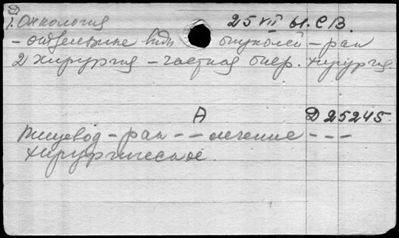 1. Онкология 25 VII 61. СВ.
- отдельные виды опухолей - рак
2) хирургия - частная опер. хирургия
А Д 25245.
Пищевод - рак - - лечение - - -
хирургическое.